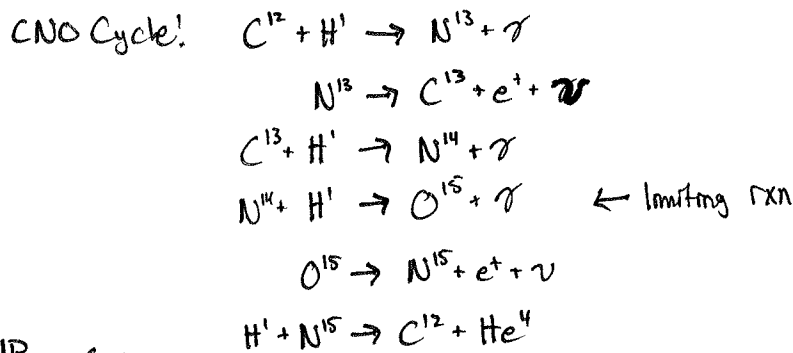 CNO Cycle! C¹² + H¹ → N¹³ + γ
N¹³ → C¹³ + e⁺ + ν
C¹³ + H¹ → N¹⁴ + γ
N¹⁴ + H¹ → O¹⁵ + γ ← limiting rxn
O¹⁵ → N¹⁵ + e⁺ + ν
H¹ + N¹⁵ → C¹² + He⁴